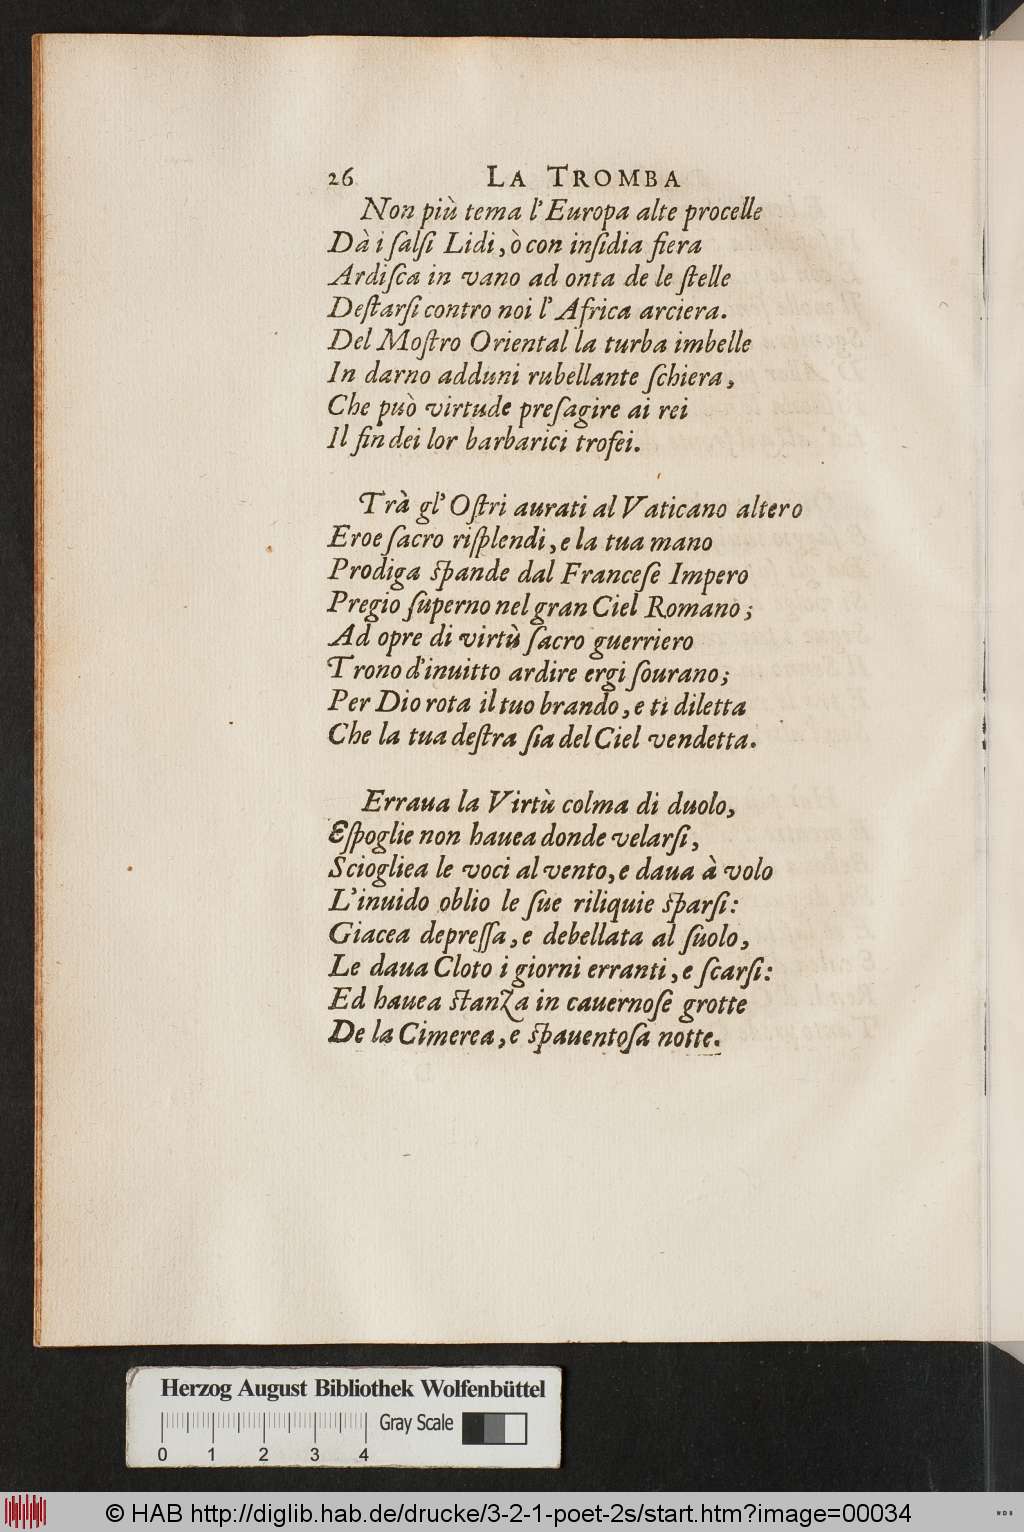 26 LA TROMBA
Non più tema l'Europa alte procelle
Dà i ſalſi Lidi, ò con inſidia fiera
Ardiſca in vano ad onta de le ſtelle
Deſtarſi contro noi l'Africa arciera.
Del Moſtro Oriental la turba imbelle
In darno adduni rubellante ſchiera,
Che può virtude preſagire ai rei
Il fin dei lor barbarici trofei.
Trà gl'Oſtri aurati al Vaticano altero
Eroe ſacro riſplendi, e la tua mano
Prodiga ſpande dal Franceſe Impero
Pregio ſuperno nel gran Ciel Romano;
Ad opre di virtù ſacro guerriero
Trono d'inuitto ardire ergi ſourano;
Per Dio rota il tuo brando, e ti diletta
Che la tua deſtra ſia del Ciel vendetta.
Erraua la Virtù colma di duolo,
Eſpoglie non hauea donde velarſi,
Sciogliea le voci al vento, e daua à volo
L'inuido oblio le ſue riliquie ſparſi:
Giacea depreſſa, e debellata al ſuolo,
Le daua Cloto i giorni erranti, e ſcarſi:
Ed hauea ſtanza in cauernoſe grotte
De la Cimerea, e ſpauentoſa notte.
Herzog August Bibliothek Wolfenbüttel
Gray Scale
0 1 2 3 4
© HAB http://diglib.hab.de/drucke/3-2-1-poet-2s/start.htm?image=00034